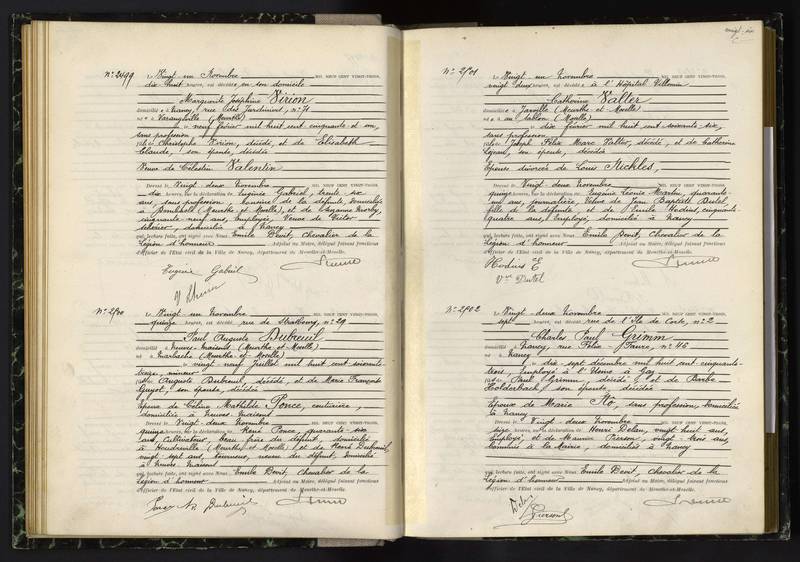 N° 2499
Le Vingt un Novembre MIL NEUF CENT VINGT-TROIS,
dix huit heures, est décédée en son domicile
Marguerite Joséphine Virion
domiciliée à Nancy, rue
née à Varangéville (Meurthe)
le neuf février mil huit cent cinquante et un,
sans profession
fille de Christophe Virion, décédé, et de Elisabeth
Claude, son épouse, décédée
Veuve de Célestin Valentin
Dressé le Vingt deux Novembre MIL NEUF CENT VINGT-TROIS,
dix heures, sur la déclaration de Eugénie Gabriel, trente six
ans, sans profession, de la défunte, domiciliée
à (Meurthe et Moselle), et de Suzanne
cinquante neuf ans, employée, Veuve de Victor
domiciliée à Nancy
qui, lecture faite, ont signé avec Nous, Emile Devit, Chevalier de la
Légion d'honneur Adjoint au Maire, délégué faisant fonctions
d'Officier de l'Etat civil de la Ville de Nancy, département de Meurthe-et-Moselle.
Eugénie Gabriel
N° 2500
Le Vingt un Novembre MIL NEUF CENT VINGT-TROIS,
quinze heures, est décédé, rue de Strasbourg, n° 29
Paul Auguste Dubreuil
domicilié à Neuves-Maisons (Meurthe et Moselle)
né à Marbache (Meurthe et Moselle)
le vingt neuf juillet mil huit cent soixante
seize, mineur
fils de Auguste Dubreuil, décédé, et de Marie Françoise
Guyot, son épouse, décédée
Epoux de Céline Mathilde Ponce, couturière,
domiciliée à Neuves-Maisons
Dressé le Vingt deux Novembre MIL NEUF CENT VINGT-TROIS,
quinze heures, sur la déclaration de René Ponce, quarante six
ans, cultivateur, beau frère du défunt, domicilié
à Houdreville (Meurthe et Moselle) et de René Dubreuil,
vingt sept ans, neveu du défunt, domicilié
à Neuves-Maisons
qui, lecture faite, ont signé avec Nous, Emile Devit, Chevalier de la
Légion d'honneur Adjoint au Maire, délégué faisant fonctions
d'Officier de l'Etat civil de la Ville de Nancy, département de Meurthe-et-Moselle.
Dubreuil
N° 2501
Le Vingt un Novembre MIL NEUF CENT VINGT-TROIS,
vingt deux heures, est décédée à l'Hôpital Villemin
Catherine Valler
domiciliée à Jarville (Meurthe et Moselle)
née à au Sablon (Moselle)
le dix février mil huit cent soixante six,
sans profession
fille de Joseph Félix Marc Valler, décédé, et de Catherine
son épouse, décédée
Epouse divorcée de Louis Mickles,
Dressé le Vingt deux Novembre MIL NEUF CENT VINGT-TROIS,
quinze heures, sur la déclaration de Eugénie Léonie Martin, quarante
un ans, journalière, Veuve de Jean Baptiste Dutel
fille de la défunte, et de Emile Hodius, cinquante
quatre ans, employé, domiciliés à Nancy
qui, lecture faite, ont signé avec Nous, Emile Devit, Chevalier de la
Légion d'honneur Adjoint au Maire, délégué faisant fonctions
d'Officier de l'Etat civil de la Ville de Nancy, département de Meurthe-et-Moselle.
Hodius E
Vve Dutel
N° 2502
Le Vingt deux Novembre MIL NEUF CENT VINGT-TROIS,
sept heures, est décédé rue de l'Ile de Corse, n° 2
Charles Paul Grimm
domicilié à Nancy, rue Félix-Faure, n° 46
né à Nancy
le dix sept décembre mil huit cent cinquante-
Employé à l'Usine à Gaz
fils de Paul Grimm, décédé, et de Barbe
Holderbach, son épouse, décédée
Epoux de Marie Ito, sans profession, domiciliée
à Nancy
Dressé le Vingt deux Novembre MIL NEUF CENT VINGT-TROIS,
seize heures, sur la déclaration de Henri Delau, vingt huit ans,
Employé, et de Maurice Pierson, vingt trois ans,
Commis à la Mairie, domiciliés à Nancy
qui, lecture faite, ont signé avec Nous, Emile Devit, Chevalier de la
Légion d'honneur Adjoint au Maire, délégué faisant fonctions
d'Officier de l'Etat civil de la Ville de Nancy, département de Meurthe-et-Moselle.
Pierson